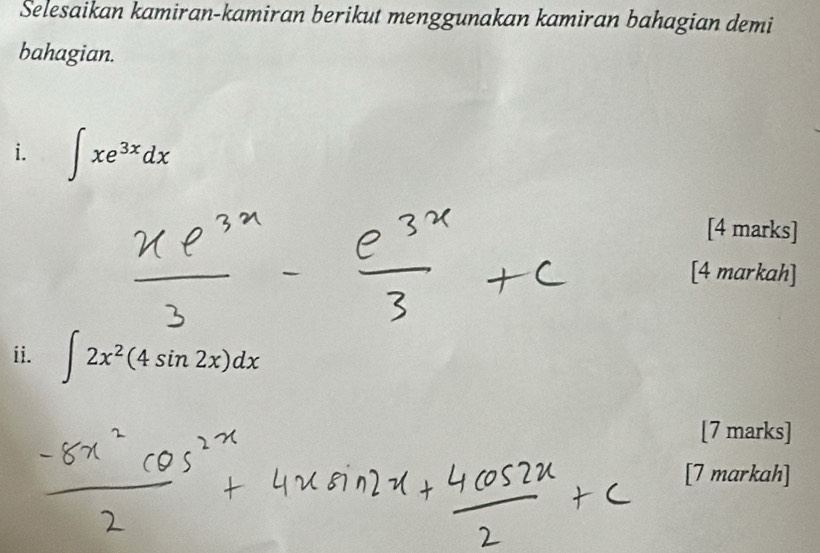 Selesaikan kamiran-kamiran berikut menggunakan kamiran bahagian demi
bahagian.
i. ∫ xe^{3x} dx
\frac{xe^{3x}}{3} - \frac{e^{3x}}{3} + c
[4 marks]
[4 markah]
ii. ∫ 2x²(4 sin 2x)dx
[7 marks]
\frac{-8x^{2} cos^{2x}}{2} + 4x sin2x + \frac{4 cos2x}{2} + c
[7 markah]